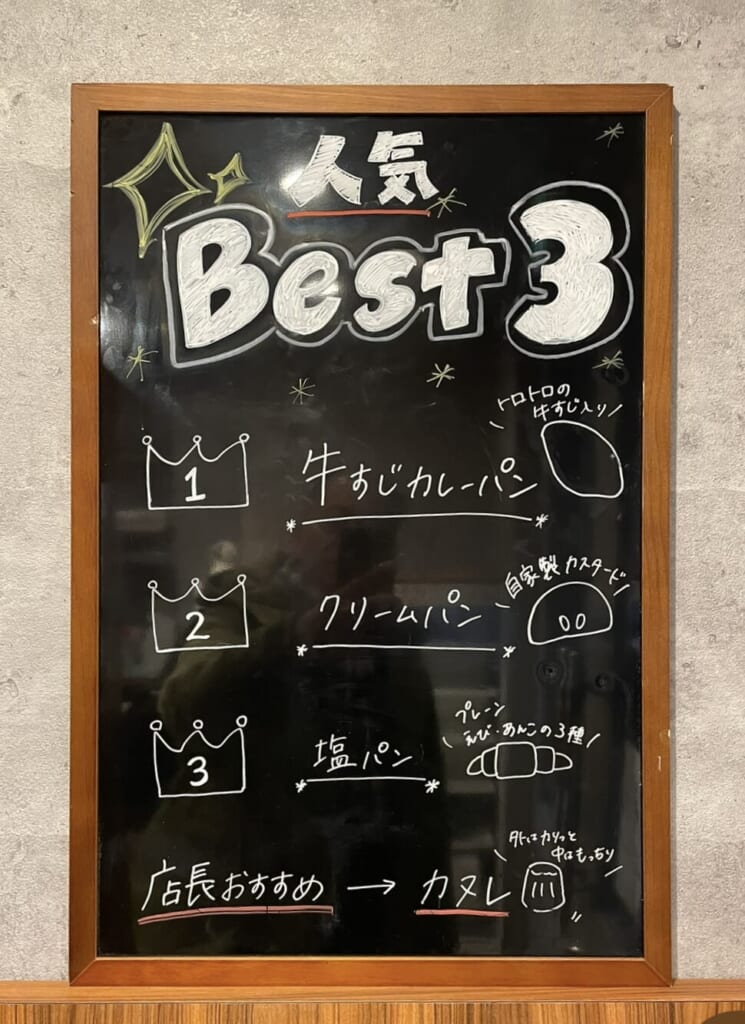 人気
Best 3
トロトロの
牛すじ入り
1
牛すじカレーパン
自家製カスタード
2
クリームパン
プレーン
えび・あんこの3種
3
塩パン
外はカリっと
中はもっちり
店長おすすめ → カヌレ